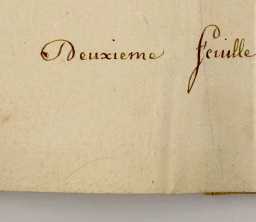 Deuxieme feuille